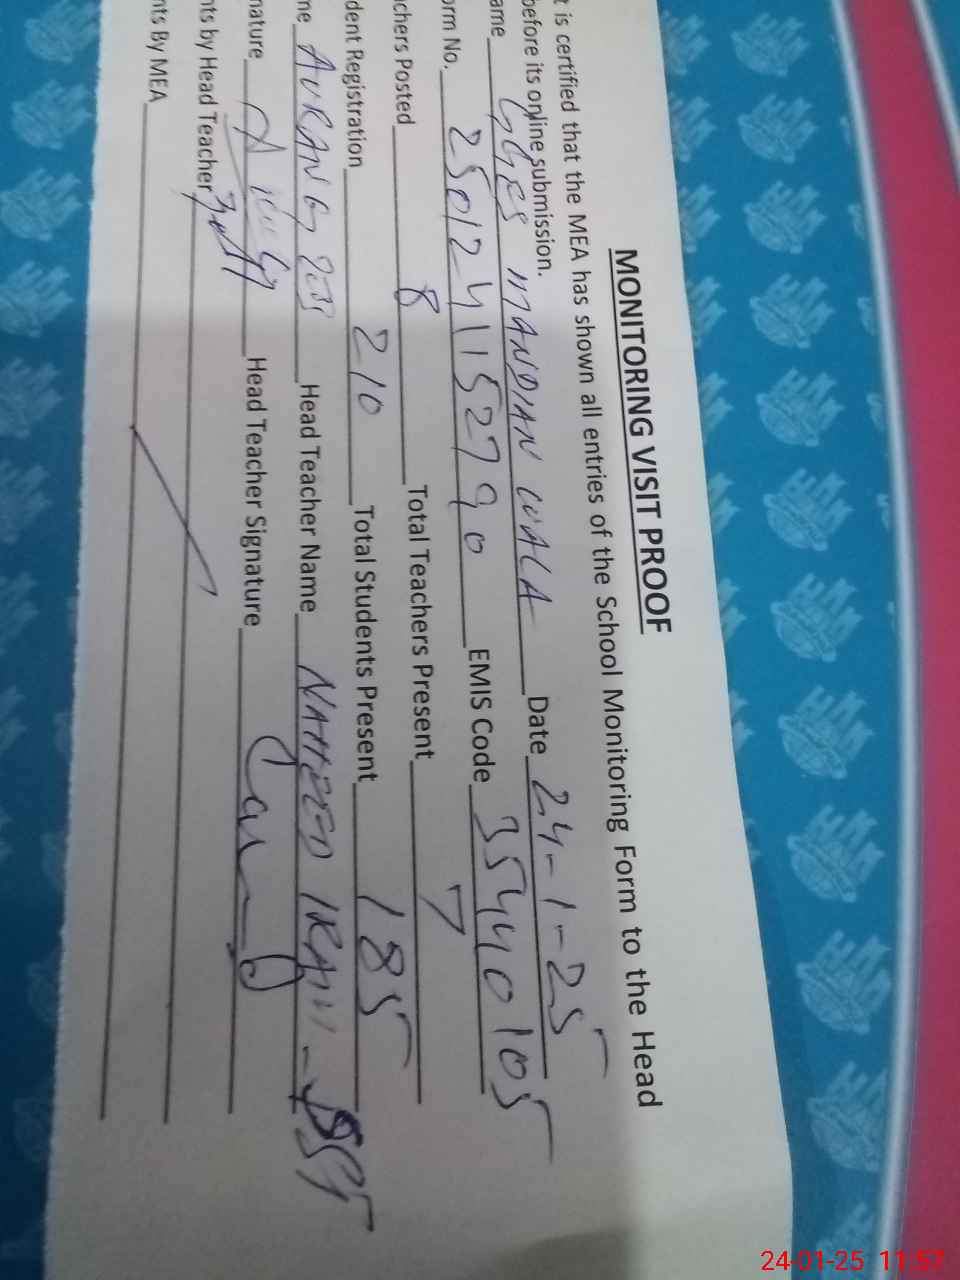 MONITORING VISIT PROOF
t is certified that the MEA has shown all entries of the School Monitoring Form to the Head
before its online submission.
ame GGES MANDIAN WALA Date 24-1-25
orm No. 2501241152790 EMIS Code 35440105
chers Posted 8 Total Teachers Present 7
dent Registration 210 Total Students Present 185
me AURANG ZEB Head Teacher Name NAHEED
nature Head Teacher Signature
nts by Head Teacher
nts By MEA
24-01-25 11:57